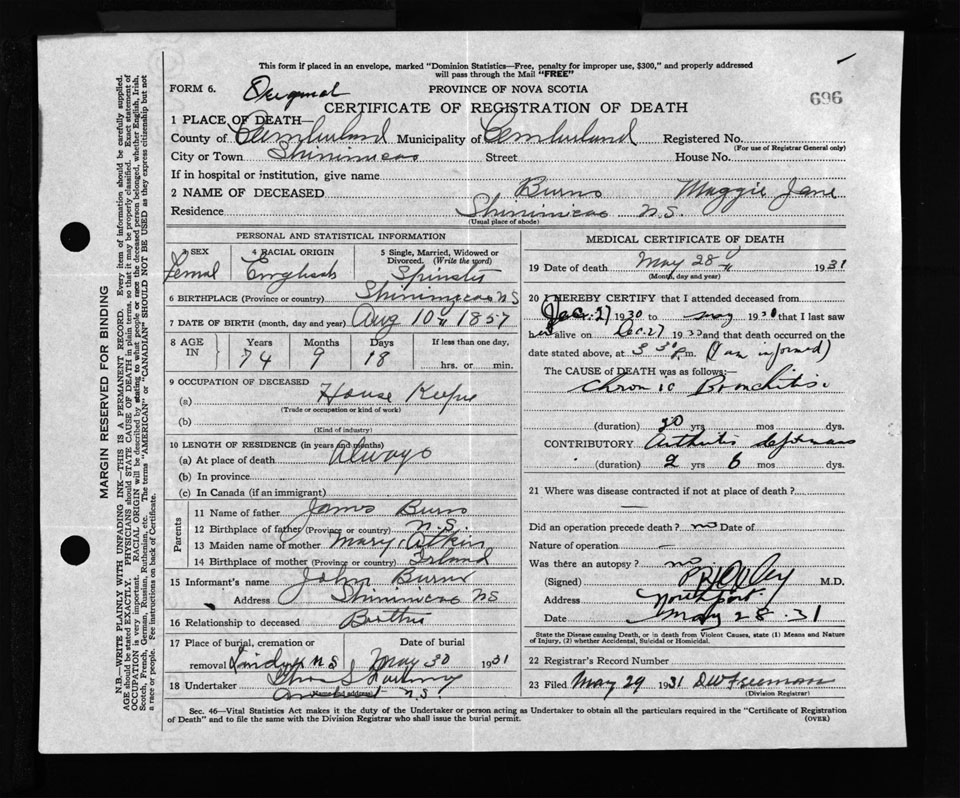 This form if placed in an envelope, marked "Dominion Statistics—Free, penalty for improper use, $300," and properly addressed
will pass through the Mail "FREE"
FORM 6. Original PROVINCE OF NOVA SCOTIA
696
CERTIFICATE OF REGISTRATION OF DEATH
1 PLACE OF DEATH—
County of Cumberland Municipality of Cumberland Registered No.
(For use of Registrar General only)
City or Town Shinimicas Street House No.
If in hospital or institution, give name
2 NAME OF DECEASED Burns Maggie Jane
Residence Shinimicas N.S.
(Usual place of abode)
PERSONAL AND STATISTICAL INFORMATION
3 SEX 4 RACIAL ORIGIN 5 Single, Married, Widowed or
Divorced. (Write the word)
Femal English Spinster
6 BIRTHPLACE (Province or country) Shinimicas NS
7 DATE OF BIRTH (month, day and year) Aug 10 1857
8 AGE IN Years Months Days If less than one day,
74 9 18 hrs. or min.
9 OCCUPATION OF DECEASED
(a) House Keeper
(Trade or occupation or kind of work)
(b)
(Kind of industry)
10 LENGTH OF RESIDENCE (in years and months)
(a) At place of death Always
(b) In province
(c) In Canada (if an immigrant)
Parents
11 Name of father James Burns
12 Birthplace of father (Province or country) N.S.
13 Maiden name of mother Mary Atkin
14 Birthplace of mother (Province or country)
15 Informant's name John Burns
Address Shinimicas NS
16 Relationship to deceased
17 Place of burial, cremation or Date of burial
removal N S May 30 1931
18 Undertaker
N S
MEDICAL CERTIFICATE OF DEATH
19 Date of death May 28 1931
(Month, day and year)
20 I HEREBY CERTIFY that I attended deceased from
Dec. 27 1930 to May 1930 that I last saw
her alive on Dec. 27 1930 and that death occurred on the
date stated above, at 3 30 P.m. (I am informed)
The CAUSE of DEATH was as follows:
Chronic Bronchitis.
(duration) 20 yrs mos dys.
CONTRIBUTORY Arthritis Deformans
(duration) 2 yrs 6 mos dys.
21 Where was disease contracted if not at place of death?
Did an operation precede death? no Date of
Nature of operation —
Was there an autopsy? no
(Signed) M.D.
Address Northport
Date May 28 - 31
State the Disease causing Death, or in death from Violent Causes, state (1) Means and Nature
of Injury, (2) whether Accidental, Suicidal or Homicidal.
22 Registrar's Record Number
23 Filed May 29 1931 D W Freeman
(Division Registrar)
Sec. 46—Vital Statistics Act makes it the duty of the Undertaker or person acting as Undertaker to obtain all the particulars required in the "Certificate of Registration
of Death" and to file the same with the Division Registrar who shall issue the burial permit. (OVER)
MARGIN RESERVED FOR BINDING
N.B.—WRITE PLAINLY WITH UNFADING INK—THIS IS A PERMANENT RECORD. Every item of information should be carefully supplied.
AGE should be stated EXACTLY. PHYSICIANS should STATE CAUSE OF DEATH in plain terms, so that it may be properly classified. Exact statement of
OCCUPATION is very important. RACIAL ORIGIN will be described by stating to what people or race the deceased person belonged, whether English, Irish,
Scotch, French, German, Russian, Ruthenian, etc. The terms "AMERICAN" or "CANADIAN" SHOULD NOT BE USED as they express citizenship but not
a race or people. See instructions on back of Certificate.